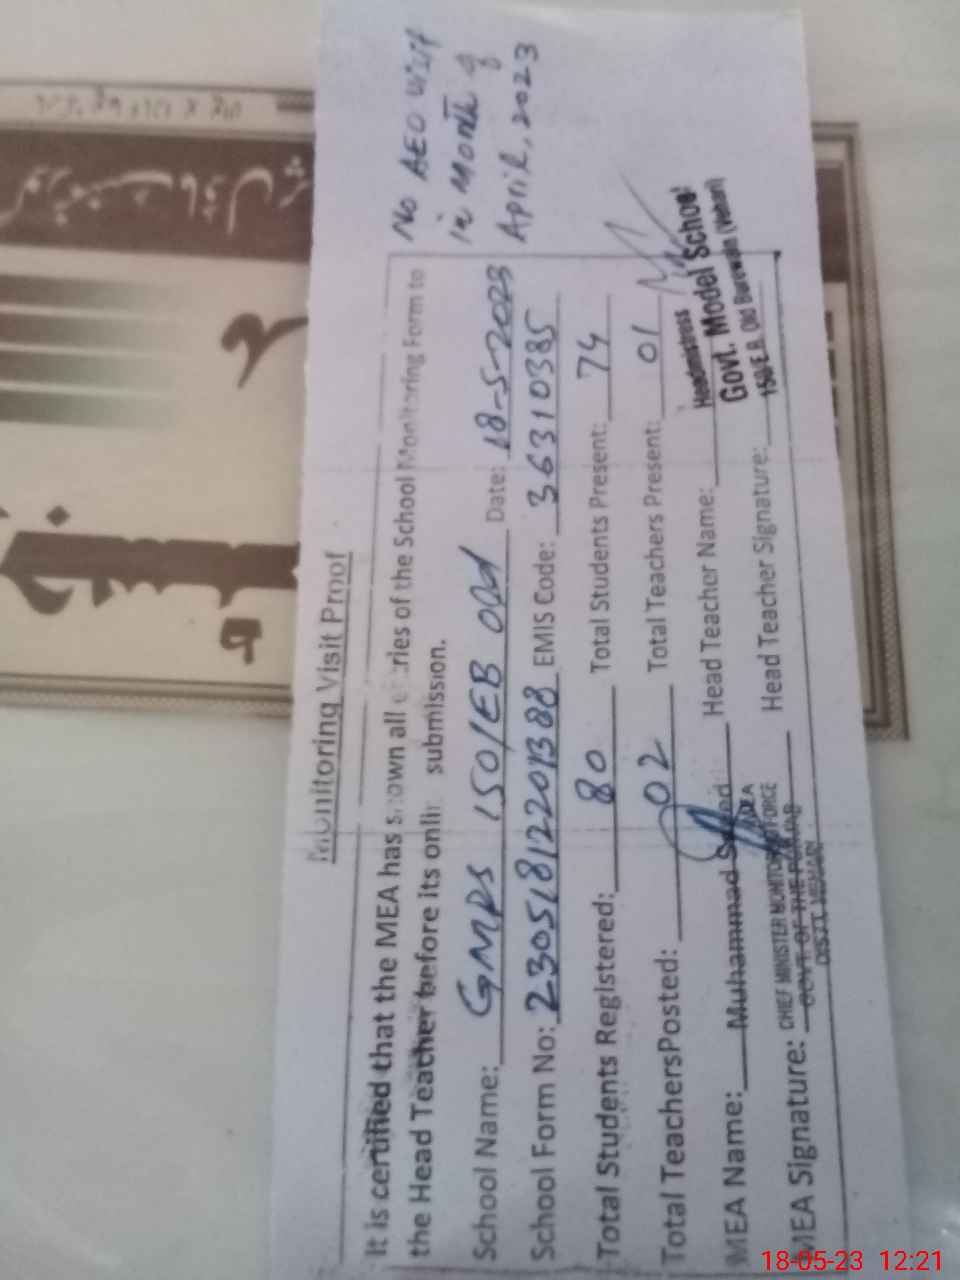 No AEO visit
in Month of
April, 2023
Monitoring Visit Proof
It is certified that the MEA has shown all entries of the School Monitoring Form to
the Head Teacher before its online submission.
School Name: GMPS 150/EB Old Date: 18-5-2023
School Form No: EMIS Code: 36310385
Total Students Registered: 80 Total Students Present: 74
Total TeachersPosted: 02 Total Teachers Present: 01
MEA Name: Muhammad Head Teacher Name:
MEA
MEA Signature: Head Teacher Signature:
CHIEF MINISTER MONITORING FORCE
GOVT. OF THE PUNJAB
DISTT. VEHARI
Headmistress
Govt. Model School
150/E.B. Old Burewala (Vehari)
18-05-23 12:21